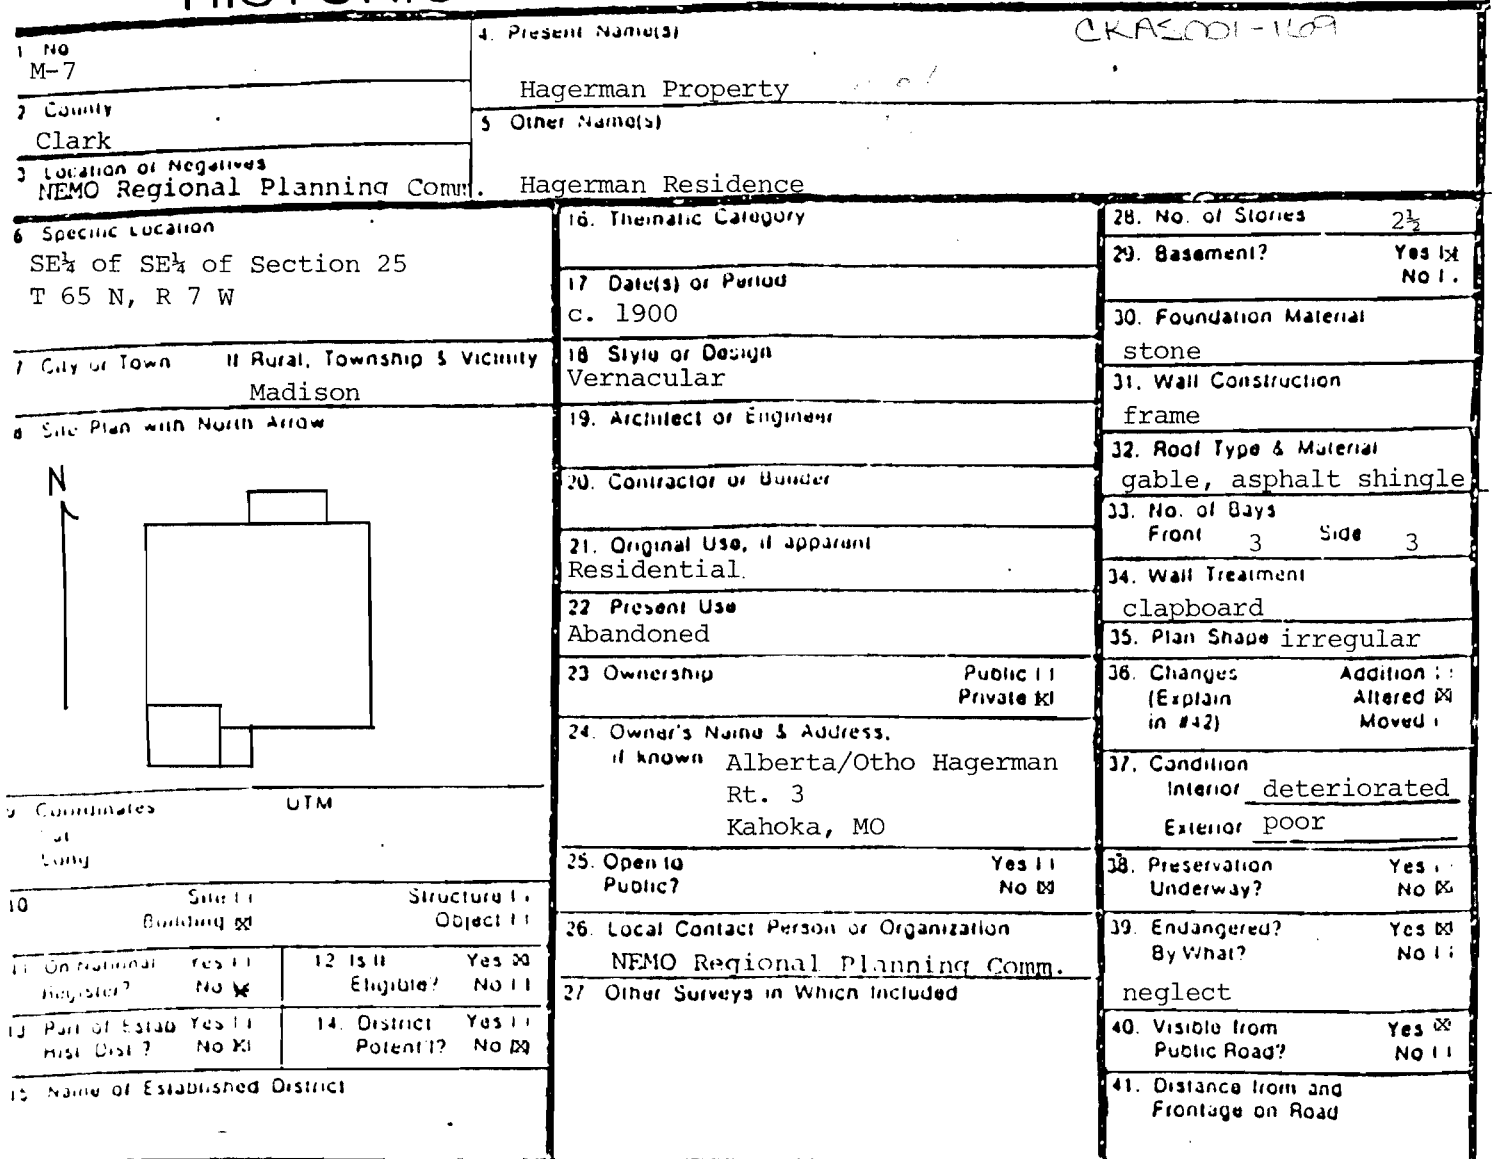 1 No
M-7
2 County
Clark
3 Location of Negatives
NEMO Regional Planning Comm.
4. Present Name(s)
CKAS001-169
Hagerman Property
5 Other Name(s)
Hagerman Residence
6 Specific Location
SE¼ of SE¼ of Section 25
T 65 N, R 7 W
7 City or Town If Rural, Township & Vicinity
Madison
8 Site Plan with North Arrow
N
9 Coordinates UTM
Lat
Long
10 Site [ ] Structure [ ]
Building [x] Object [ ]
11 On National Yes [ ]
Register? No [x]
12 Is it Yes [x]
Eligible? No [ ]
13 Part of Estab Yes [ ]
Hist Dist ? No [x]
14. District Yes [ ]
Potent'l? No [x]
15 Name of Established District
16. Thematic Category
17 Date(s) or Period
c. 1900
18 Style or Design
Vernacular
19. Architect or Engineer
20. Contractor or Builder
21. Original Use, if apparent
Residential
22 Present Use
Abandoned
23 Ownership Public [ ]
Private [x]
24. Owner's Name & Address,
if known Alberta/Otho Hagerman
Rt. 3
Kahoka, MO
25. Open to Yes [ ]
Public? No [x]
26. Local Contact Person or Organization
NEMO Regional Planning Comm.
27 Other Surveys in Which Included
28. No. of Stories 2½
29. Basement? Yes [x]
No [ ]
30. Foundation Material
stone
31. Wall Construction
frame
32. Roof Type & Material
gable, asphalt shingle
33. No. of Bays
Front 3 Side 3
34. Wall Treatment
clapboard
35. Plan Shape irregular
36. Changes Addition [ ]
(Explain Altered [x]
in #42) Moved [ ]
37. Condition
Interior deteriorated
Exterior poor
38. Preservation Yes [ ]
Underway? No [x]
39. Endangered? Yes [x]
By What? No [ ]
neglect
40. Visible from Yes [x]
Public Road? No [ ]
41. Distance from and
Frontage on Road